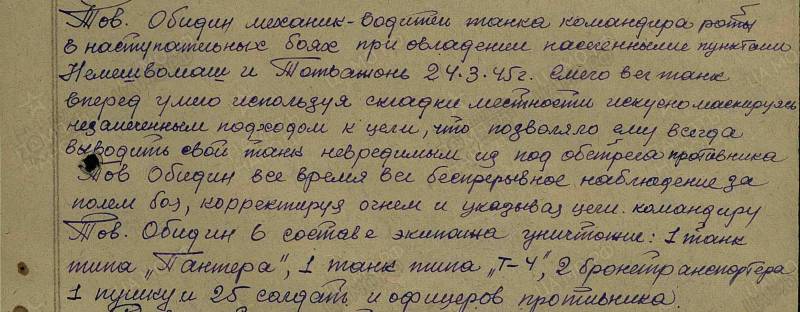 Тов. Обидин механик-водитель танка командира роты
в наступательных боях при овладении населенными пунктами
Немешвомаш и Тотвашонь 24.3.45г. Смело вел танк
вперед умело используя складки местности искусно маскируясь
незамеченным подходом к цели, что позволяло ему всегда
выводить свой танк невредимым из под обстрела противника
Тов Обидин все время вел беспрерывное наблюдение за
полем боя, корректируя огнем и указывая цели командиру
Тов. Обидин в составе экипажа уничтожил: 1 танк
типа „Пантера", 1 танк типа „Т-4", 2 бронетранспортера
1 пушку и 25 солдать и офицеров противника.